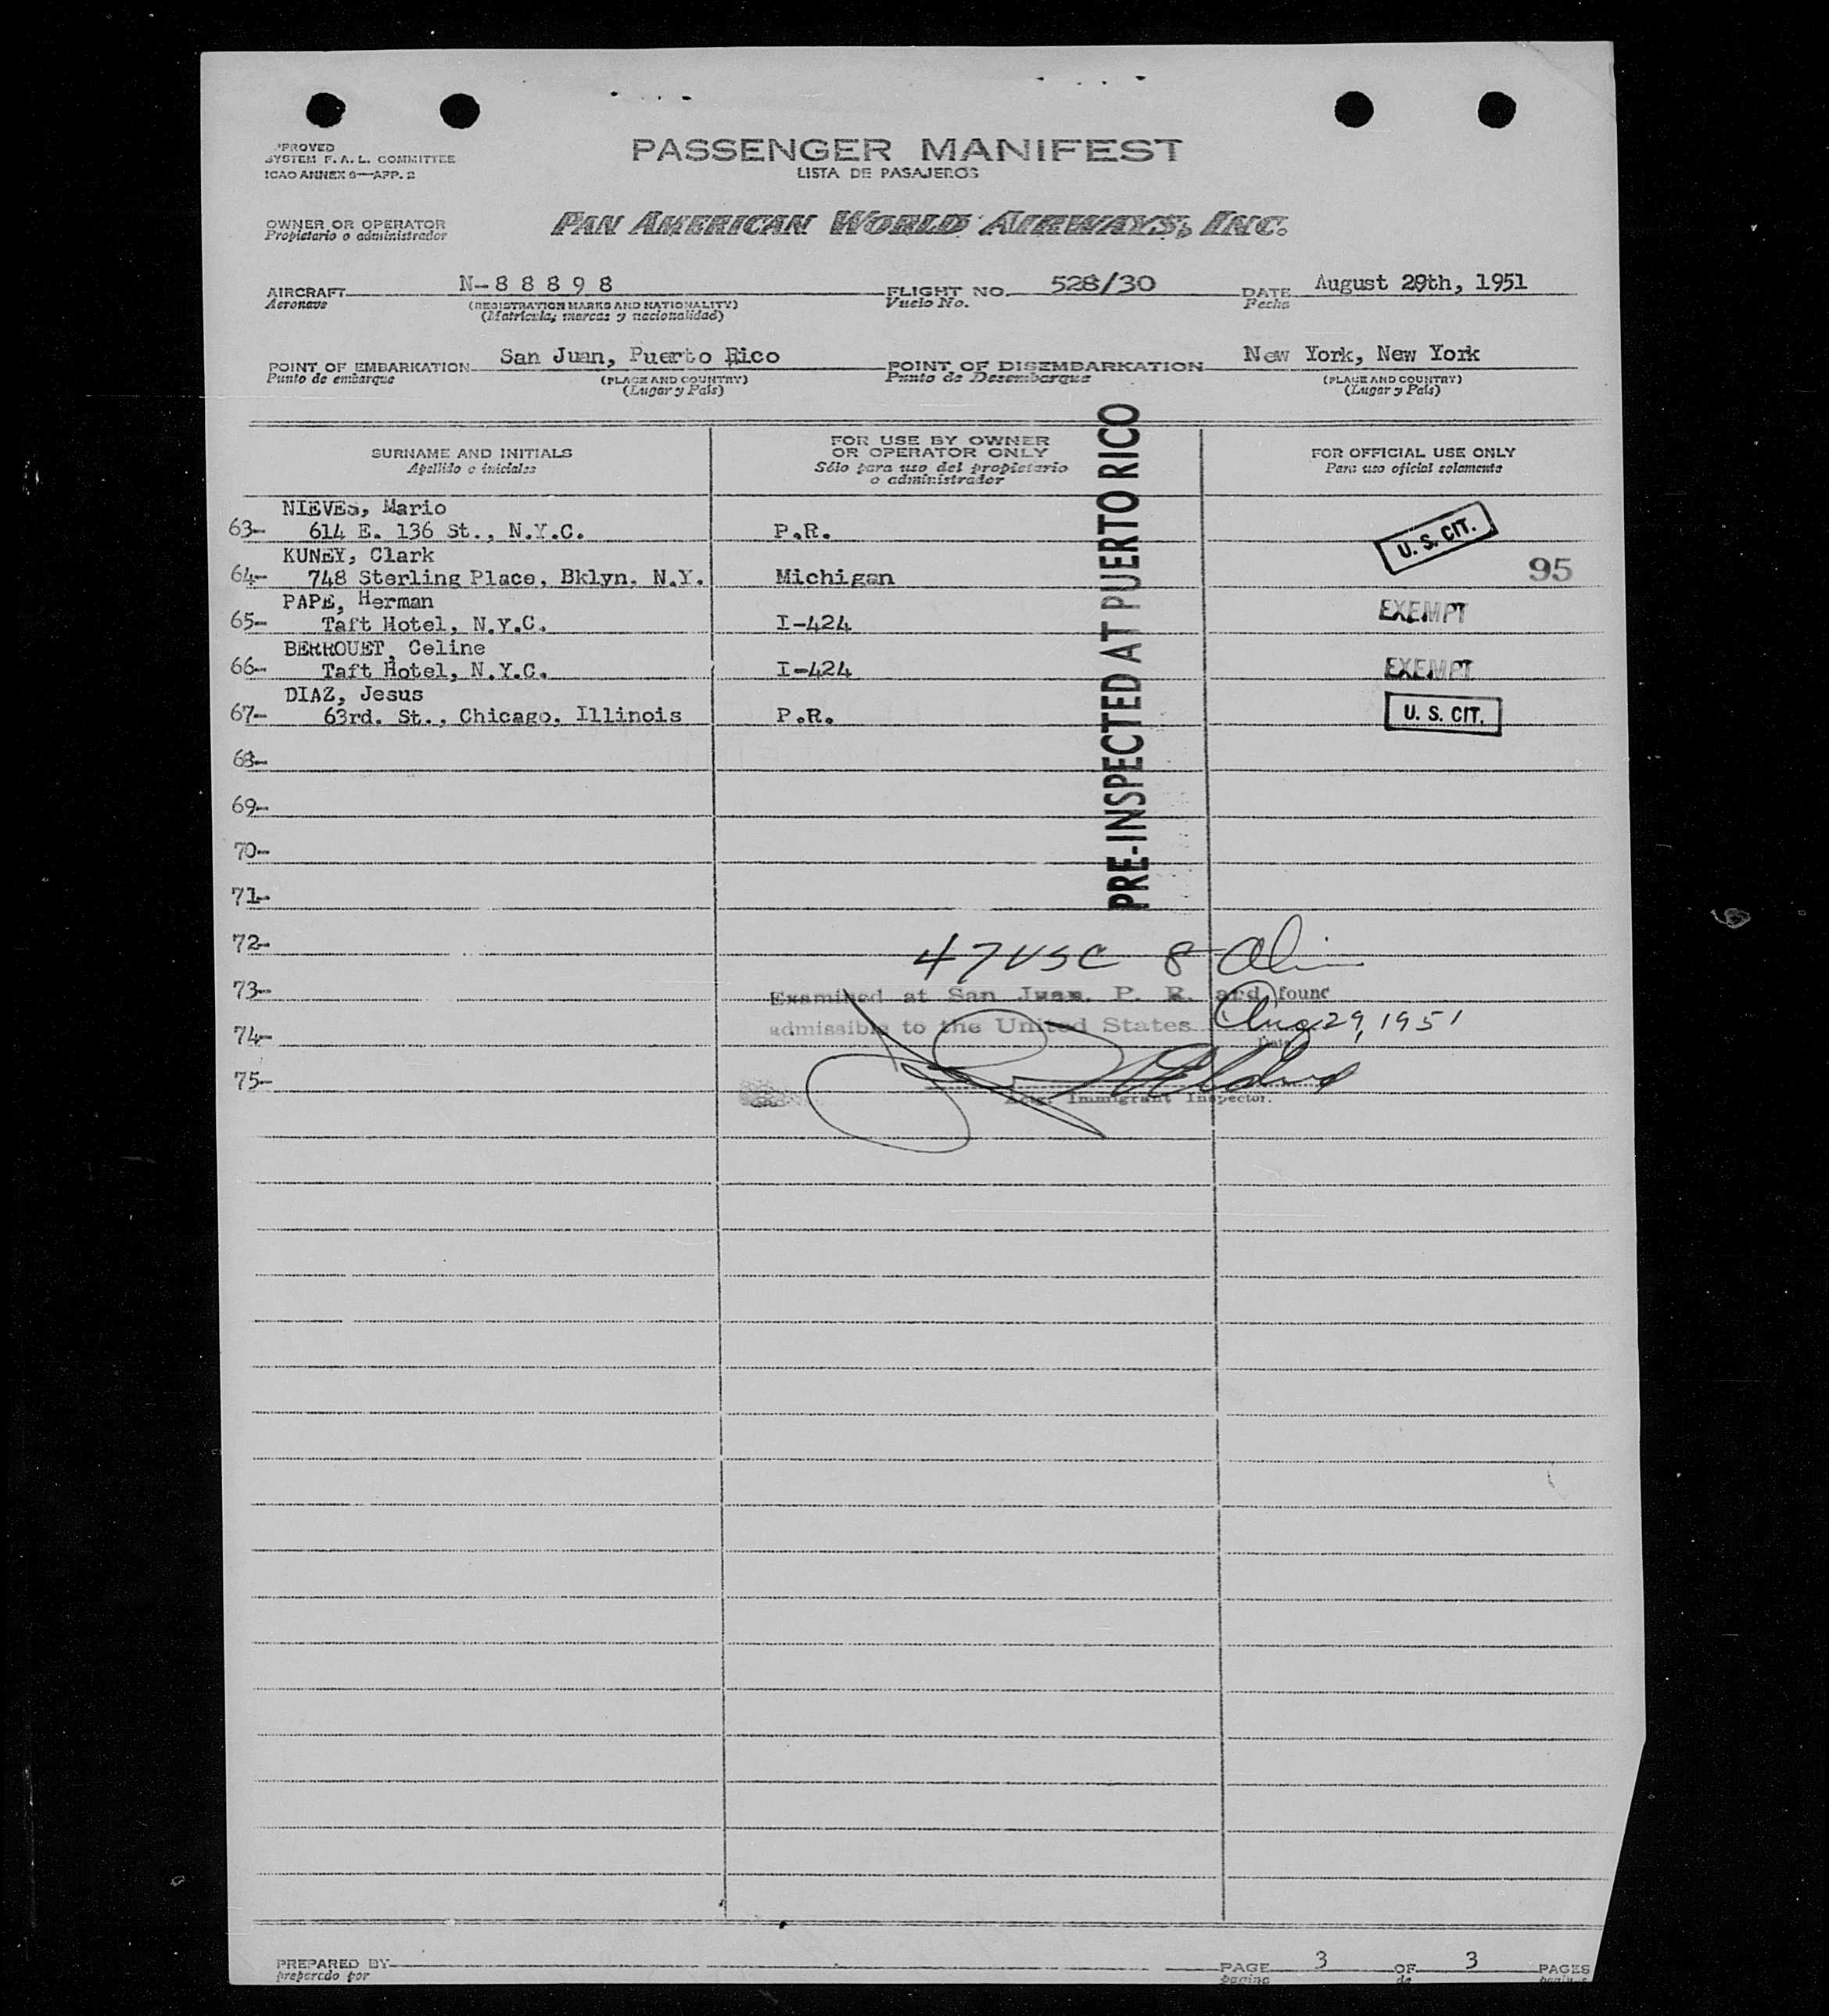 PPROVED
SYSTEM F. A. L. COMMITTEE
ICAO ANNEX 9—APP. 2
PASSENGER MANIFEST
LISTA DE PASAJEROS
OWNER OR OPERATOR
Propietario o administrador
PAN AMERICAN WORLD AIRWAYS, INC.
AIRCRAFT N-88898 FLIGHT NO. 528/30 DATE August 29th, 1951
Aeronave (REGISTRATION MARKS AND NATIONALITY) Vuelo No. Fecha
(Matrícula, marcas y nacionalidad)
POINT OF EMBARKATION San Juan, Puerto Rico POINT OF DISEMBARKATION New York, New York
Punto de embarque (PLACE AND COUNTRY) Punto de Desembarque (PLACE AND COUNTRY)
(Lugar y País) (Lugar y País)
SURNAME AND INITIALS
Apellido e iniciales
FOR USE BY OWNER
OR OPERATOR ONLY
Sólo para uso del propietario
o administrador
FOR OFFICIAL USE ONLY
Para uso oficial solamente
PRE-INSPECTED AT PUERTO RICO
NIEVES, Mario
63- 614 E. 136 St., N.Y.C. P.R. U. S. CIT.
KUNEY, Clark
64- 748 Sterling Place, Bklyn. N.Y. Michigan 95
PAPE, Herman
65- Taft Hotel, N.Y.C. I-424 EXEMPT
BERROUET, Celine
66- Taft Hotel, N.Y.C. I-424 EXEMPT
DIAZ, Jesus
67- 63rd. St., Chicago, Illinois P.R. U. S. CIT.
68-
69-
70-
71-
72-
47 USC 8
73-
Examined at San Juan, P. R. and found
74-
admissible to the United States Aug 29, 1951
Date
75-
Actg. Immigrant Inspector.
PREPARED BY
preparado por
PAGE 3 OF 3 PAGES
página de páginas